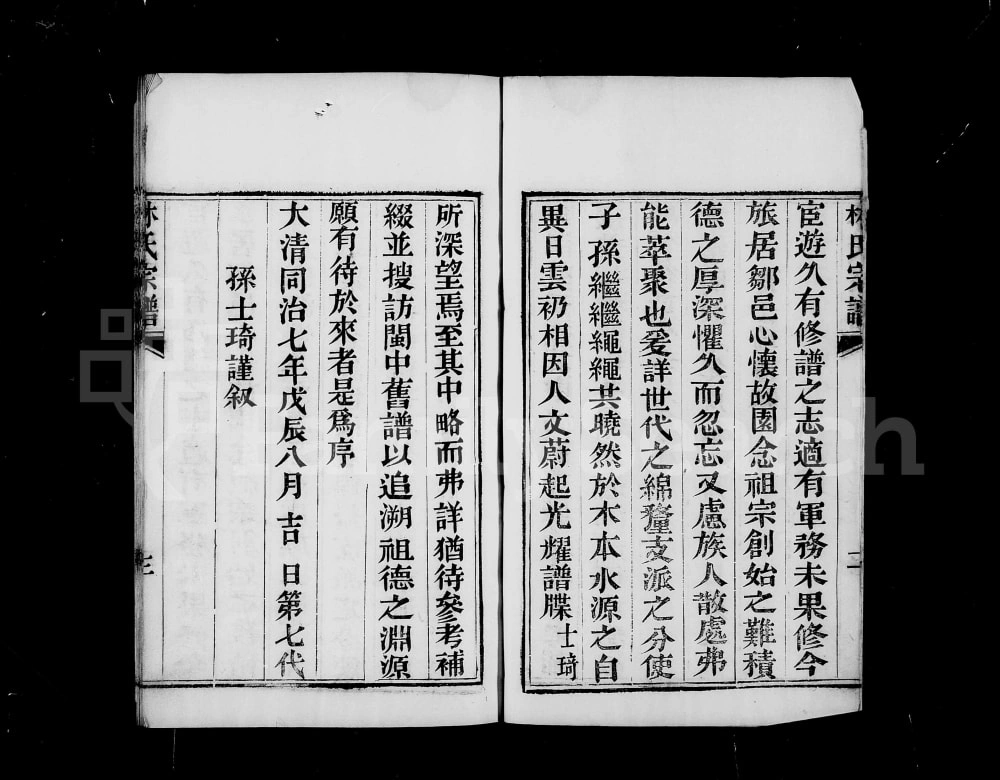 林氏宗譜
二
宦遊久有修譜之志適有軍務未果修今
旅居鄒邑心懷故園念祖宗創始之難積
德之厚深懼久而忽忘又慮族人散處弗
能萃聚也爰詳世代之綿釐支派之分使
子孫繼繼繩繩共曉然於木本水源之自
異日雲礽相因人文蔚起光耀譜牒士琦
所深望焉至其中略而弗詳猶待參考補
綴並搜訪閩中舊譜以追溯祖德之淵源
願有待於來者是爲序
大清同治七年戊辰八月吉日第七代
孫士琦謹叙
林氏宗譜